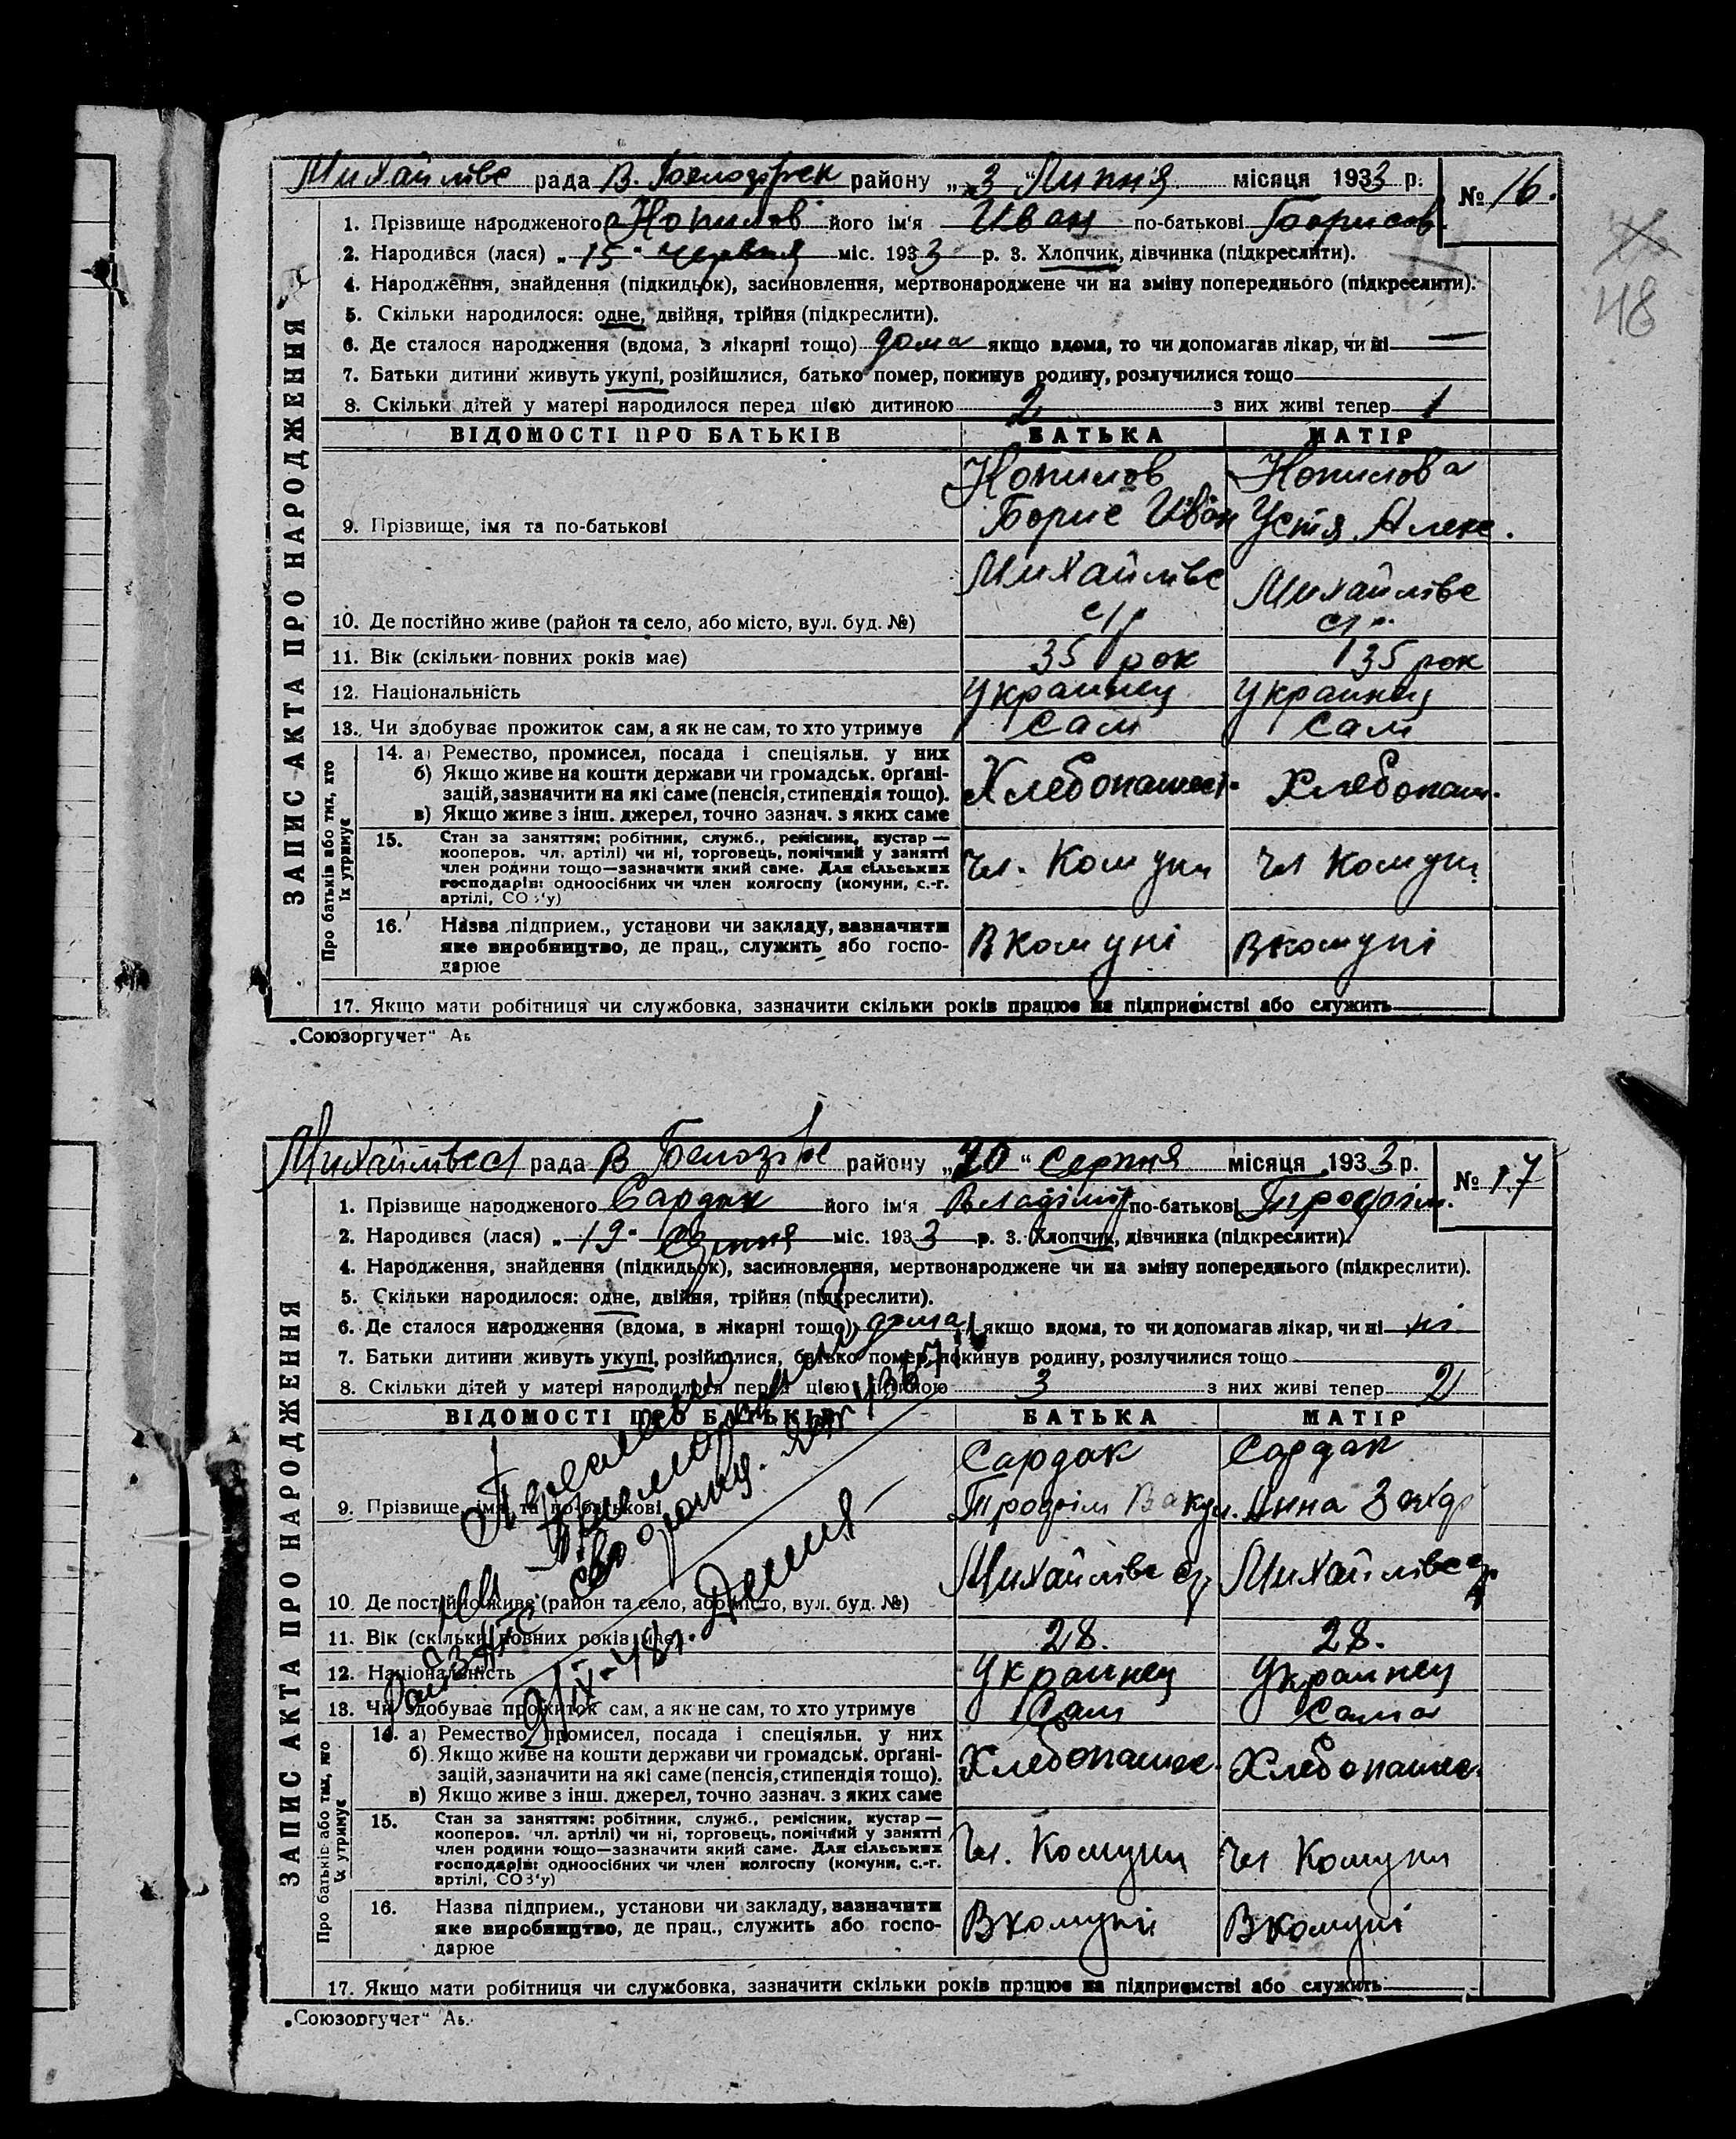 Михайлівс рада В. Белозірск району „3“ Липня місяця 1933 р.
№ 16.
48
1. Прізвище народженого Копилов його ім'я Иван по-батькові Борисов.
2. Народився (лася) „15“ червня міс. 1933 р. 3. Хлопчик, дівчинка (підкреслити).
4. Народження, знайдення (підкидьок), засиновлення, мертвонароджене чи на зміну попереднього (підкреслити).
5. Скільки народилося: одне, двійня, трійня (підкреслити).
6. Де сталося народження (вдома, з лікарні тощо) дома якщо вдома, то чи допомагав лікар, чи ні —
7. Батьки дитини живуть укупі, розійшлися, батько помер, покинув родину, розлучилися тощо
8. Скільки дітей у матері народилося перед цією дитиною 2 з них живі тепер 1
ЗАПИС АКТА ПРО НАРОДЖЕННЯ
ВІДОМОСТІ ПРО БАТЬКІВ БАТЬКА МАТІР
Копилов Копилова
9. Прізвище, імя та по-батькові Борис Иван Устя Алекс.
Михайлівс Михайлівс
10. Де постійно живе (район та село, або місто, вул. буд. №) с/р с/р.
11. Вік (скільки повних років має) 35 рок 35 рок
12. Національність Украинец Украинец
13. Чи здобуває прожиток сам, а як не сам, то хто утримує Сам Сам
Про батьків або тих, хто їх утримує
14. а) Ремество, промисел, посада і спеціяльн. у них
б) Якщо живе на кошти держави чи громадськ. органі-
зацій, зазначити на які саме (пенсія, стипендія тощо). Хлебопашест. Хлебопаш.
в) Якщо живе з інш. джерел, точно зазнач. з яких саме
15. Стан за заняттям: робітник, служб., ремісник, кустар —
кооперов. чл. артілі) чи ні, торговець, помічний у занятті
член родини тощо—зазначити який саме. Для сільських чл. Комуни чл Комуни
господарів: одноосібних чи член колгоспу (комуни, с.-г.
артілі, СОЗ'у)
16. Назва підприєм., установи чи закладу, зазначити
яке виробництво, де прац., служить або госпо- В комуні В комуні
дарює
17. Якщо мати робітниця чи службовка, зазначити скільки років працює на підприємстві або служить
„Союзоргучет“ Аь
Михайлівс рада В Белозірс району „20“ Серпня місяця 1933 р.
№ 17
1. Прізвище народженого Сардак його ім'я Владімір по-батькові Трофім.
2. Народився (лася) „19“ Серпня міс. 1933 р. 3. Хлопчик, дівчинка (підкреслити).
4. Народження, знайдення (підкидьок), засиновлення, мертвонароджене чи на зміну попереднього (підкреслити).
5. Скільки народилося: одне, двійня, трійня (підкреслити).
6. Де сталося народження (вдома, в лікарні тощо) дома якщо вдома, то чи допомагав лікар, чи ні ні
7. Батьки дитини живуть укупі, розійшлися, батько помер, покинув родину, розлучилися тощо
8. Скільки дітей у матері народилося перед цією дитиною 3 з них живі тепер 2
ЗАПИС АКТА ПРО НАРОДЖЕННЯ
ВІДОМОСТІ ПРО БАТЬКІВ БАТЬКА МАТІР
Сардак Сардак
9. Прізвище, імя та по-батькові Трофім Вакул. Анна Захар
10. Де постійно живе (район та село, або місто, вул. буд. №) Михайлівс с/р Михайлівс с/р.
11. Вік (скільки повних років має) 28. 28.
12. Національність Украинец Украинец
13. Чи здобуває прожиток сам, а як не сам, то хто утримує Сам Сама
РайЗАГС
9/IX-48г.
Про батьків або тих, хто їх утримує
14. а) Ремество, промисел, посада і спеціяльн. у них
б) Якщо живе на кошти держави чи громадськ. органі-
зацій, зазначити на які саме (пенсія, стипендія тощо). Хлебопашес. Хлебопашес.
в) Якщо живе з інш. джерел, точно зазнач. з яких саме
15. Стан за заняттям: робітник, служб., ремісник, кустар —
кооперов. чл. артілі) чи ні, торговець, помічний у занятті
член родини тощо—зазначити який саме. Для сільських чл. Комуни чл Комуни
господарів: одноосібних чи член колгоспу (комуни, с.-г.
артілі, СОЗ'у)
16. Назва підприєм., установи чи закладу, зазначити
яке виробництво, де прац., служить або госпо- В комуні В комуні
дарює
17. Якщо мати робітниця чи службовка, зазначити скільки років працює на підприємстві або служить
„Союзоргучет“ Аь.